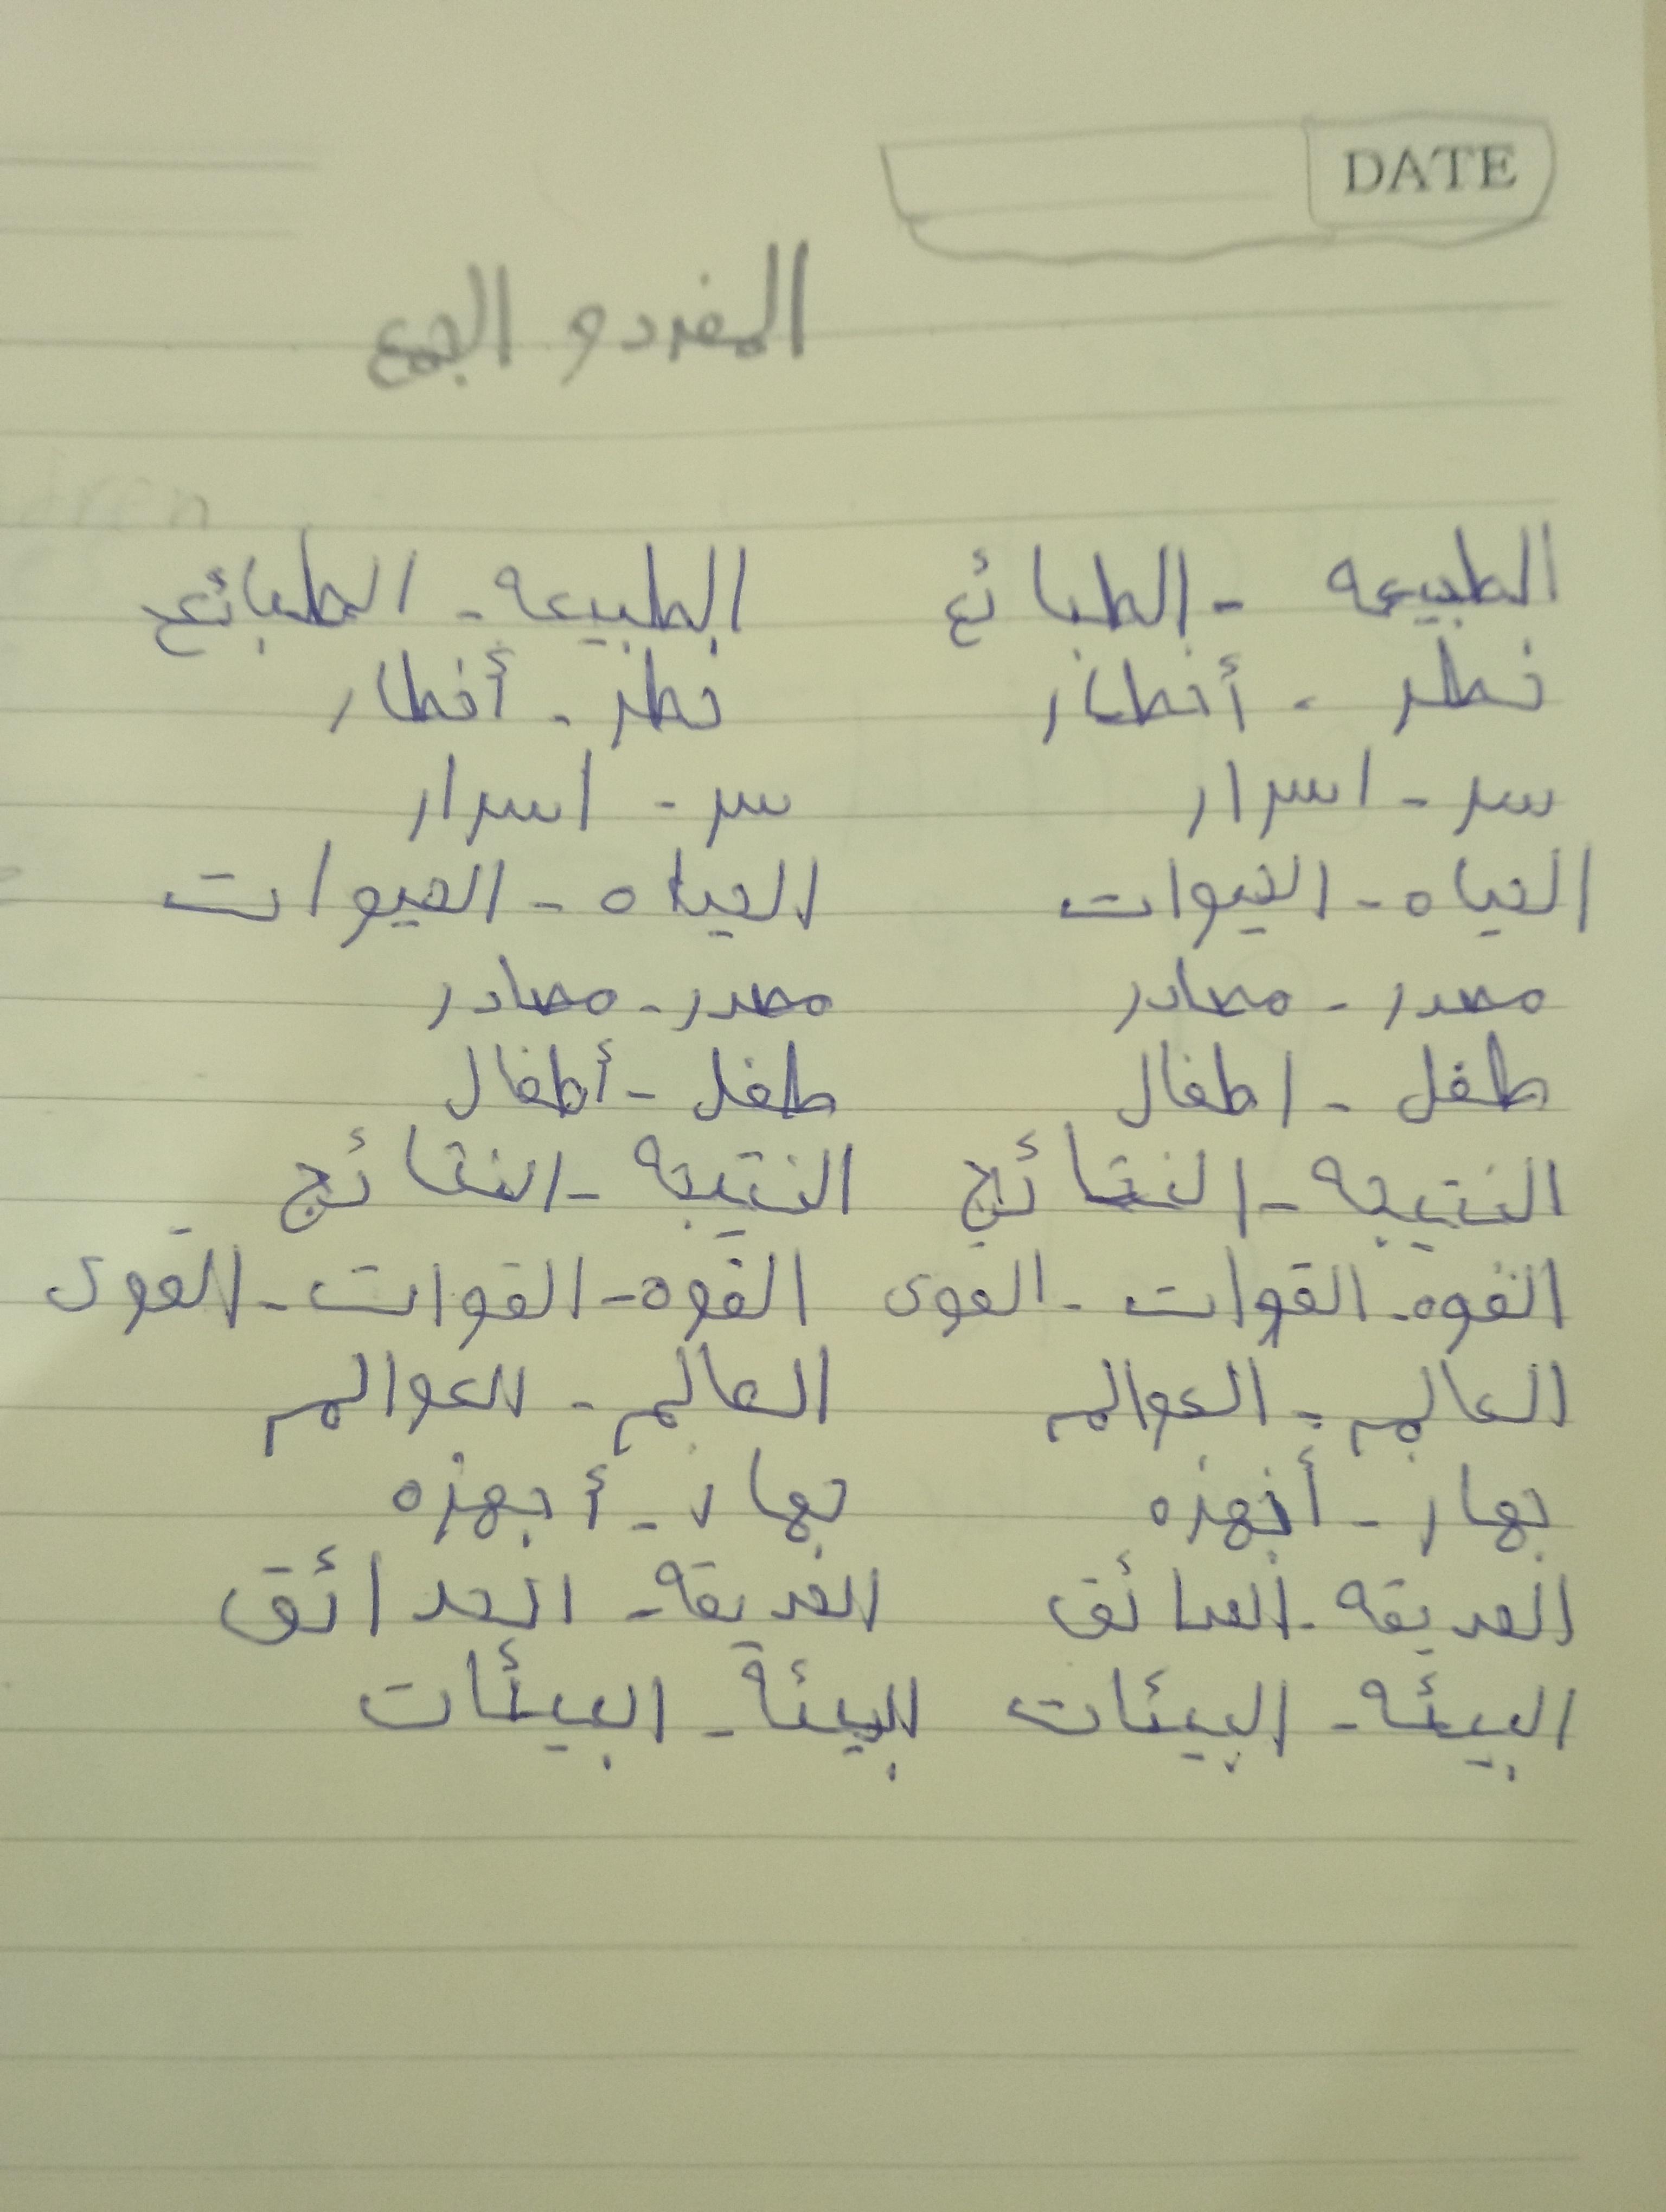 DATE
المفرد و الجمع
الطبيعه - الطبائع الطبيعه - الطبائع
خطر - أخطار خطر - أخطار
سر - اسرار سر - اسرار
الحياه - الحيوات الحياه - الحيوات
مصدر - مصادر مصدر - مصادر
طفل - اطفال طفل - أطفال
النتيجه - النتائج النتيجه - النتائج
القوه - القوات - القوى القوه - القوات - القوى
العالم - العوالم العالم - العوالم
جهاز - أجهزه جهاز - أجهزه
الحديقه - الحدائق الحديقه - الحدائق
البيئه - البيئات البيئة - البيئات